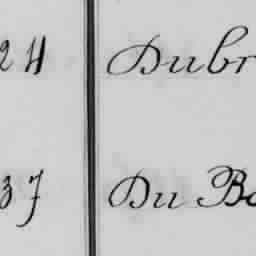 24 Dubr
37 Du Bo